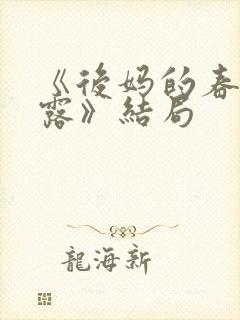 《後妈的春
露》結局
龍海新